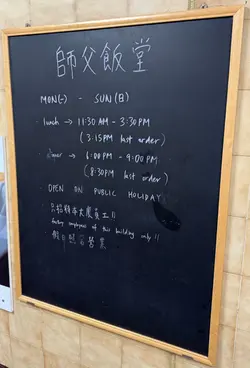 師父飯堂
MON(一) - SUN(日)
· lunch → 11:30 AM - 3:30 PM
(3:15PM last order)
· dinner → 6:00 PM - 9:00 PM
(8:30PM last order)
· OPEN ON PUBLIC HOLIDAY
· 只招待本大廈員工!!
factory employees of this building only!!
· 假日照常營業